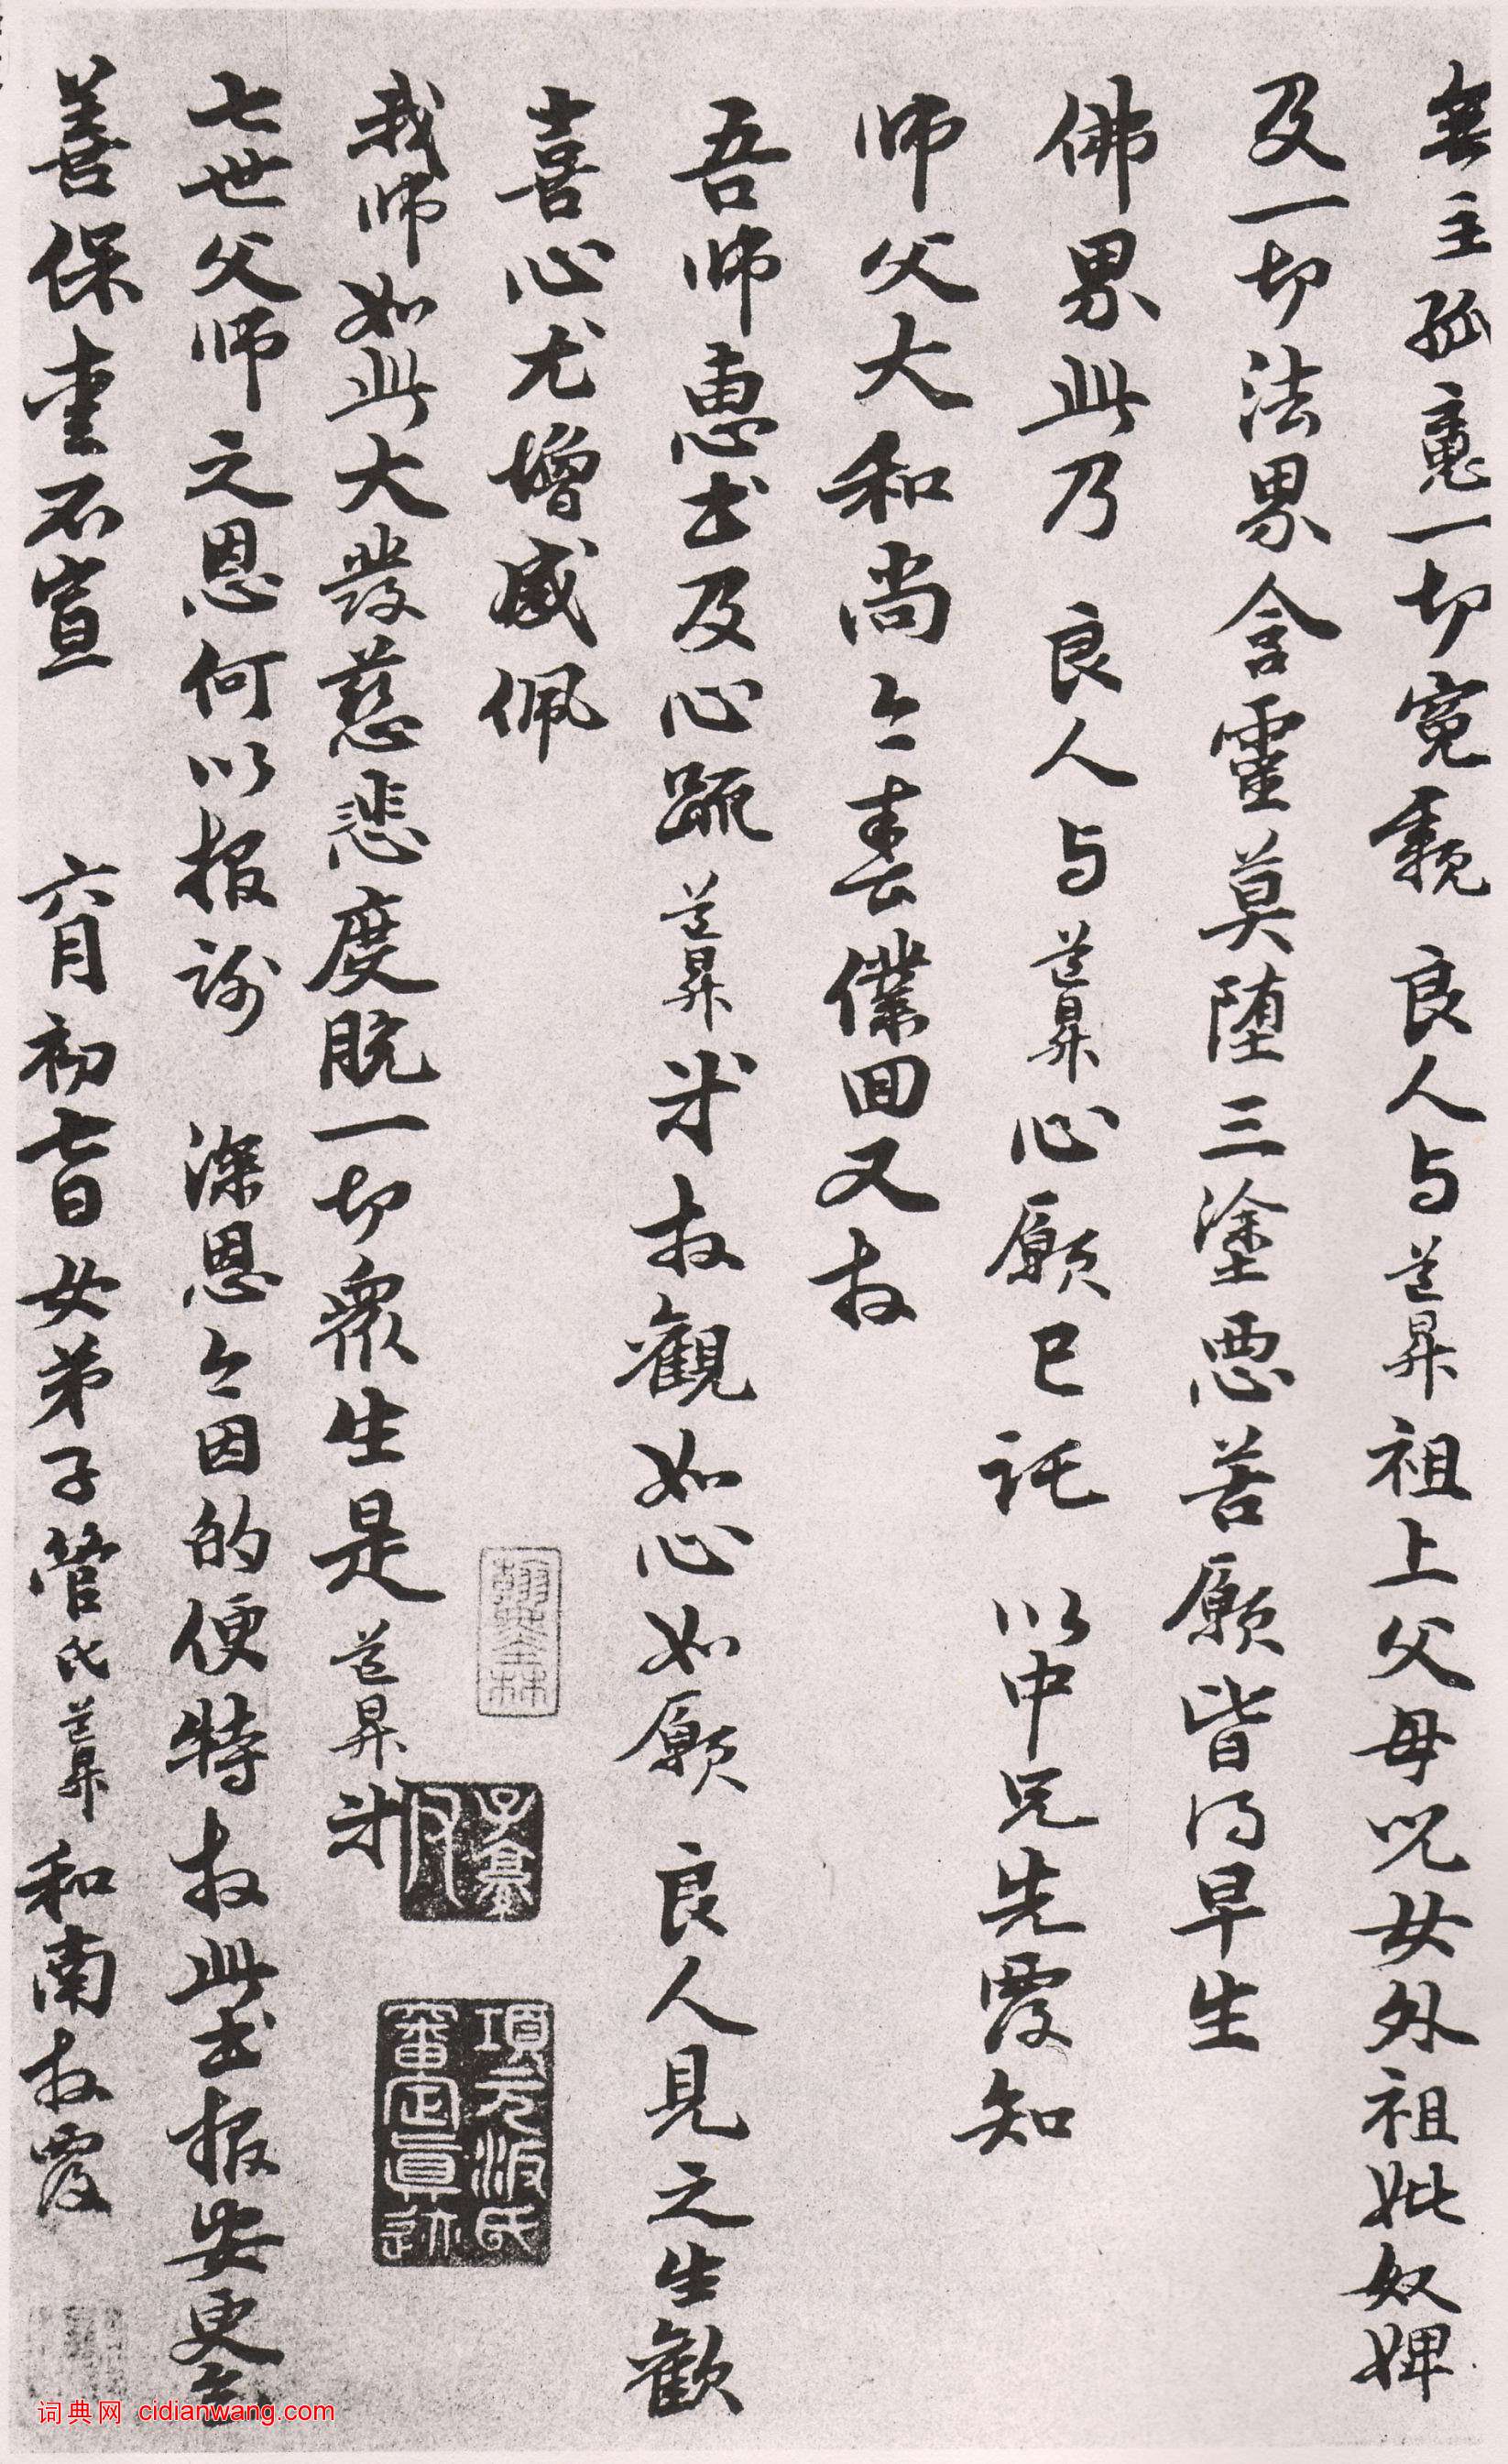 無主孤魂一切冤親 良人与道昇祖上父母兒女外祖妣奴婢
及一切法界含靈莫堕三塗惡苦願皆得早生
佛界此乃 良人与道昇心願已託 以中兄先覆知
师父大和尚今春僕回又收
吾师惠书及心疏道昇米收觀如心如願 良人見之生歡
喜心尤增感佩
我师如此大發慈悲度脱一切衆生是道昇米
七世父师之恩何以报谢 深恩今因的便特收此书报安更乞
善保重不宣 六月初七日女弟子管氏道昇和南收覆
子京
項元汴氏審定真跡
词典网 cidianwang.com